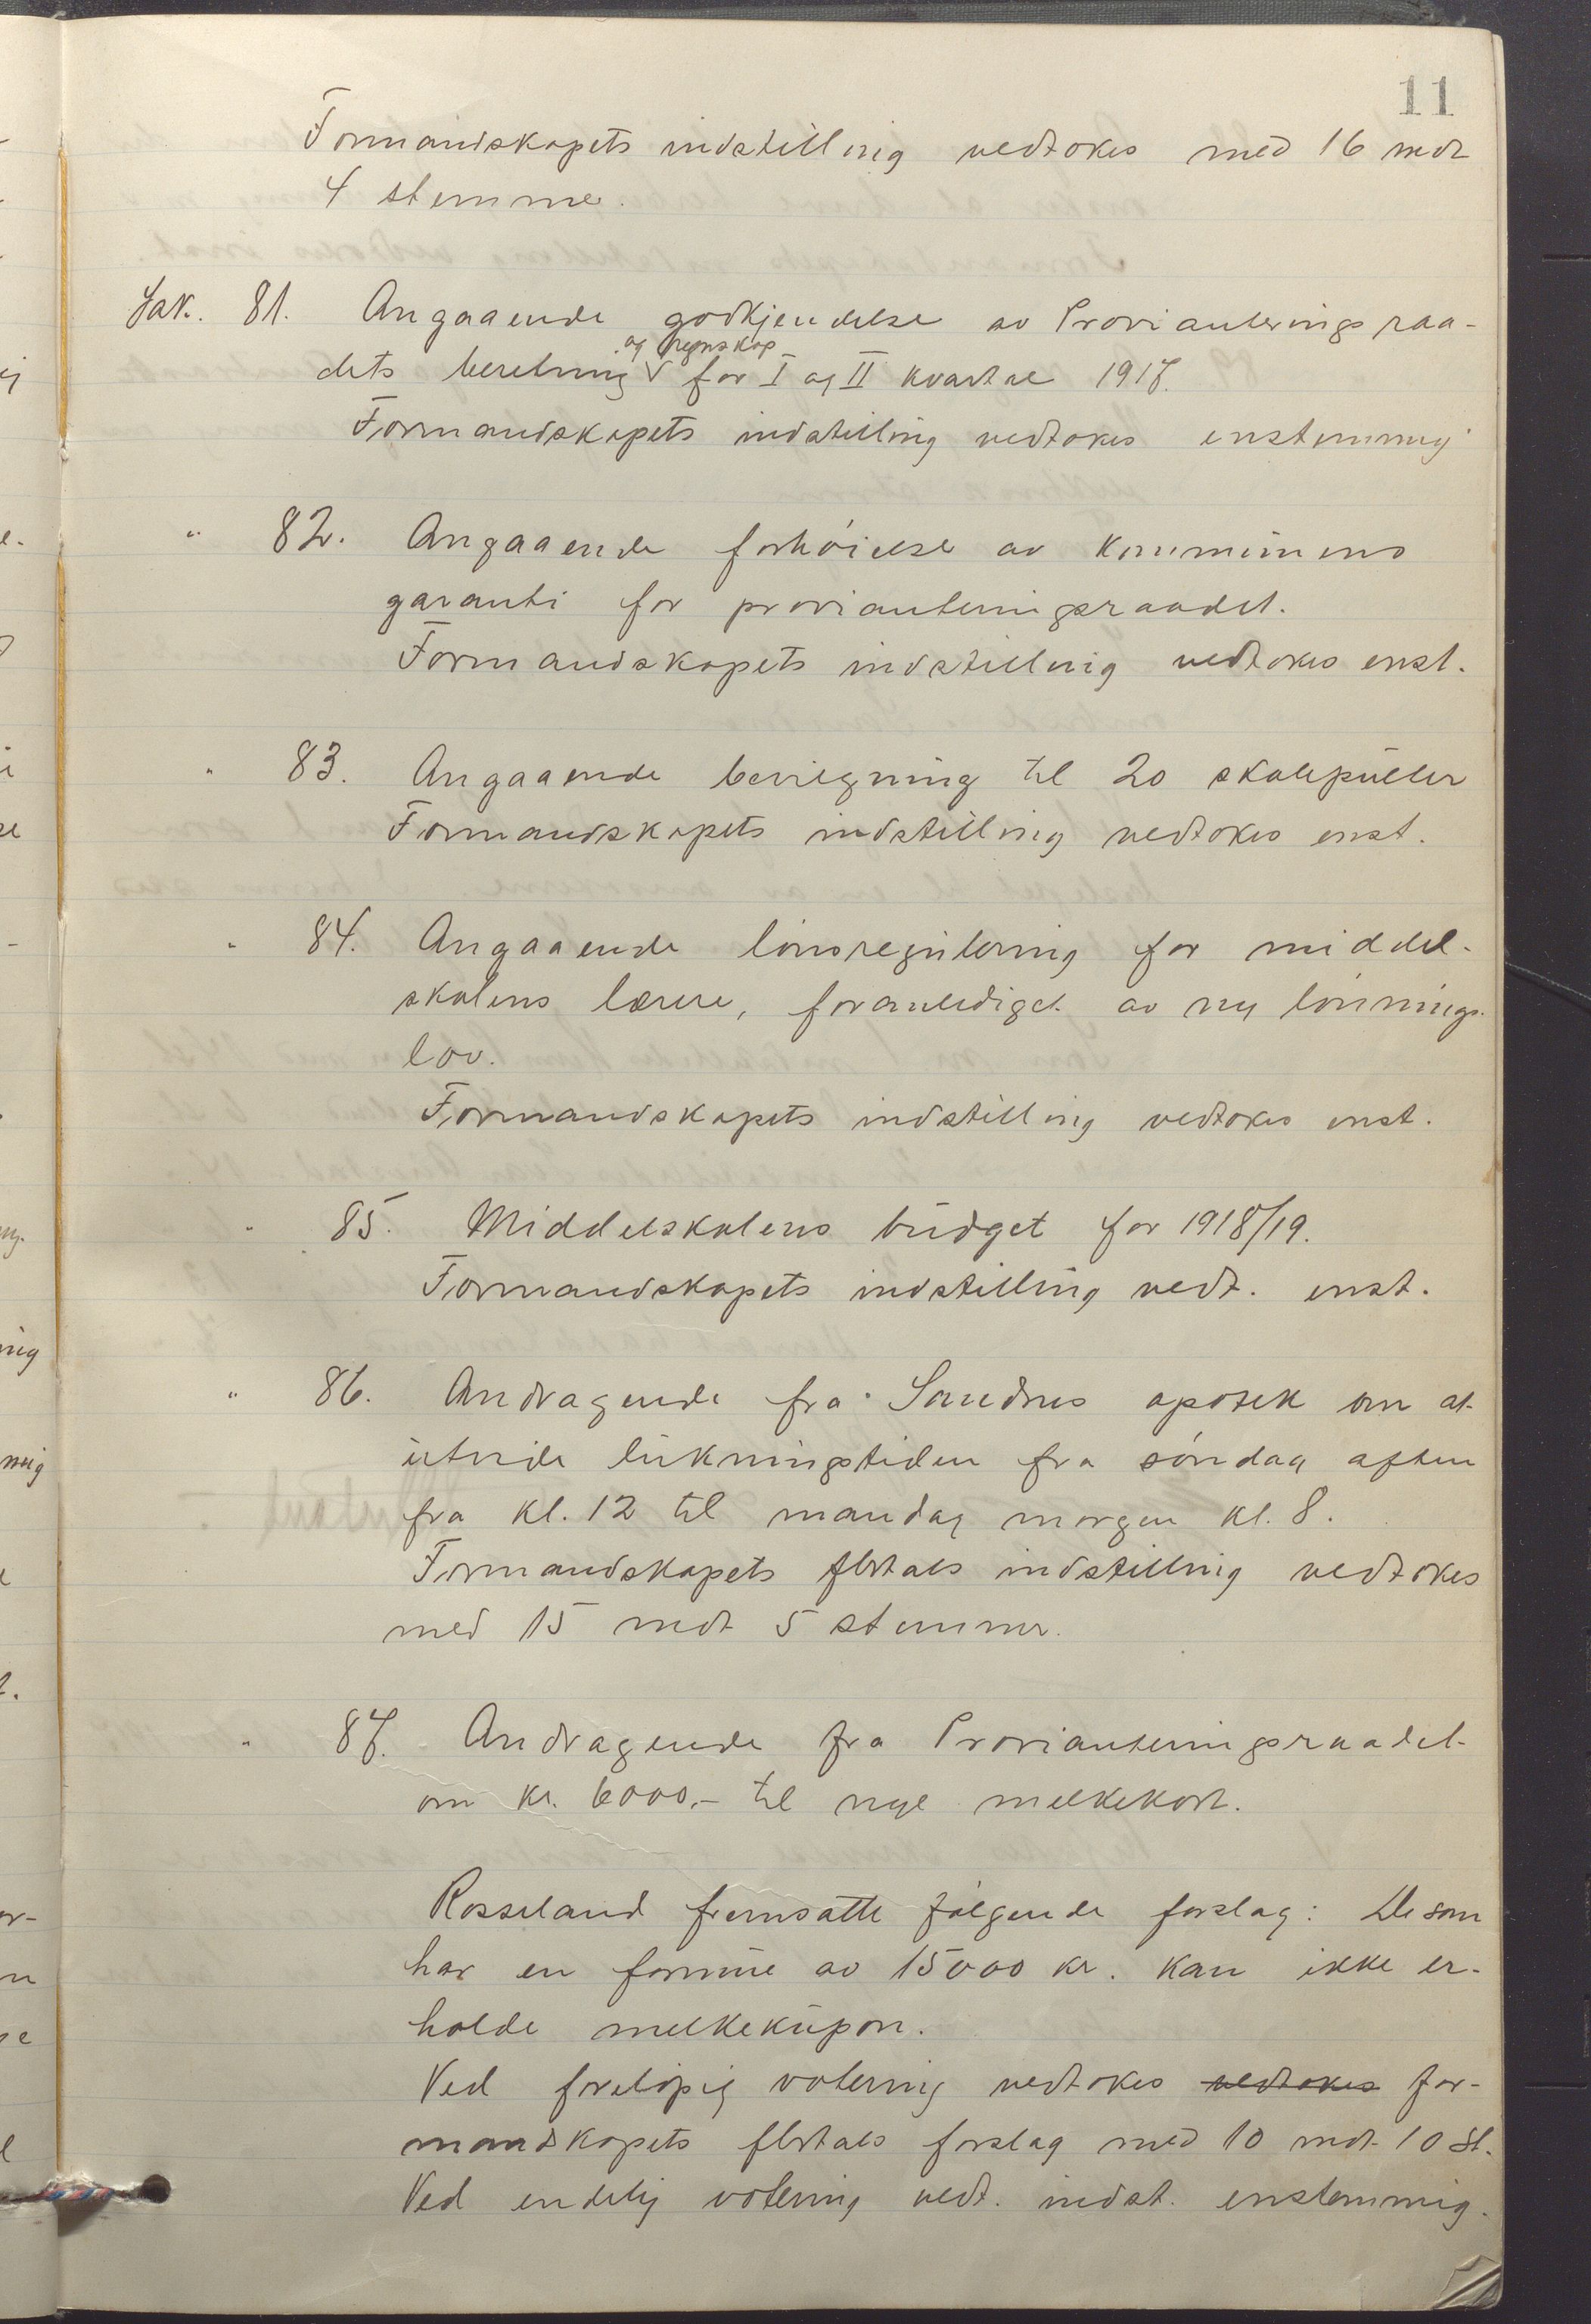 11
Formandskapets indstilling vedtokes med 16 mot
4 stemmer.
Sak. 81. Angaaende godkjendelse av Provianteringsraa-
dets beretning og regnskap for I og II kvartal 1917.
Formandskapets indstilling vedtokes enstemmig
" 82. Angaaende forhóielse av kommunens
garanti for provianteringsraadet.
Formandskapets indstilling vedtokes enst.
" 83. Angaaende bevilgning til 20 skolepulter
Formandskapets indstilling vedtokes enst.
" 84. Angaaende lónsregulering for middel-
skolens lærere, foranlediget av ny lónnings-
lov.
Formandskapets indstilling vedtokes enst.
" 85. Middelskolens budget for 1918/19.
Formandskapets indstilling vedt. enst.
" 86. Andragende fra Sandnes apotek om at
utvide lukningstiden fra sóndag aften
fra kl. 12 til mandag morgen kl. 8.
Formandskapets flertals indstilling vedtokes
med 15 mot 5 stemmer.
" 87. Andragende fra Provianteringsraadet
om kr. 6000,- til nye melkekort.
Rosseland fremsatte fólgende forslag: De som
har en formue av 15000 kr. kan ikke er-
holde melkekupon.
Ved forelópig votering vedtokes vedtokes for-
mandskapets flertals forslag med 10 mot 10 st.
Ved endelig votering vedt. indst. enstemmig.